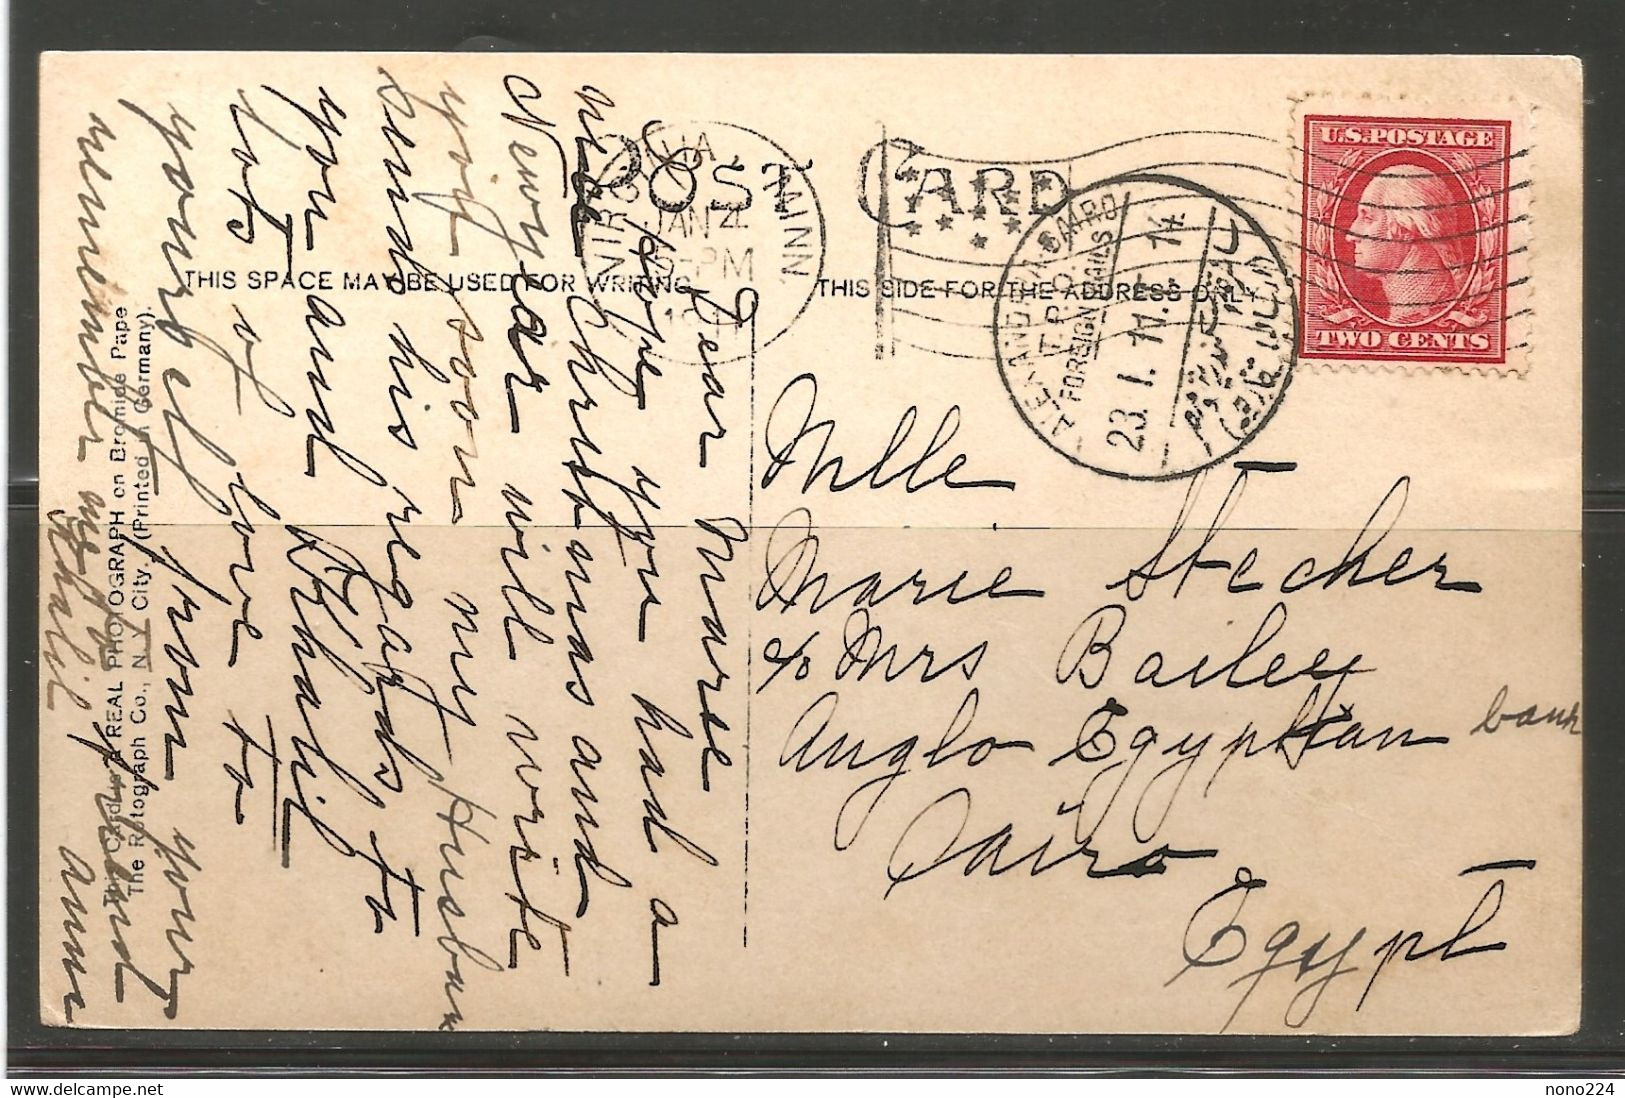 POST CARD
THIS SPACE MAY BE USED FOR WRITING
THIS SIDE FOR THE ADDRESS ONLY
VIRGINIA
JAN 4
PM
MINN.
ALEXANDRIA-CAIRO
T.P.O.
FOREIGN MAILS
23. I. 11. - 14
U.S. POSTAGE
TWO CENTS
Dear Marie
I hope you had a
nice Christmas and
New year will write
you soon my Husban
sends his regards to
you and Khalil
lots of love to
yourself from your
remember me friend
Khalil Anna
Mlle
Marie Stecher
c/o Mrs Bailey
Anglo Egyptian bank
Cairo
Egypt
This Card is a REAL PHOTOGRAPH on Bromide Pape
The Rotograph Co., N.Y. City. (Printed in Germany).
delcampe.net
nono224